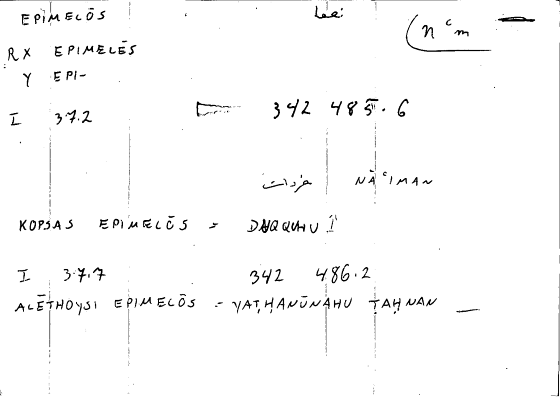 EPIMELŌS نعما (nᶜm
RX EPIMELĒS
Y EPI-
I 37.2 342 485.6
مزدات NĀᶜIMAN
KOPSAS EPIMELŌS = DAQQUHU
I 37.7 342 486.2
ALĒTHOYSI EPIMELŌS = YAṬḤANŪNAHU ṬAḤNAN